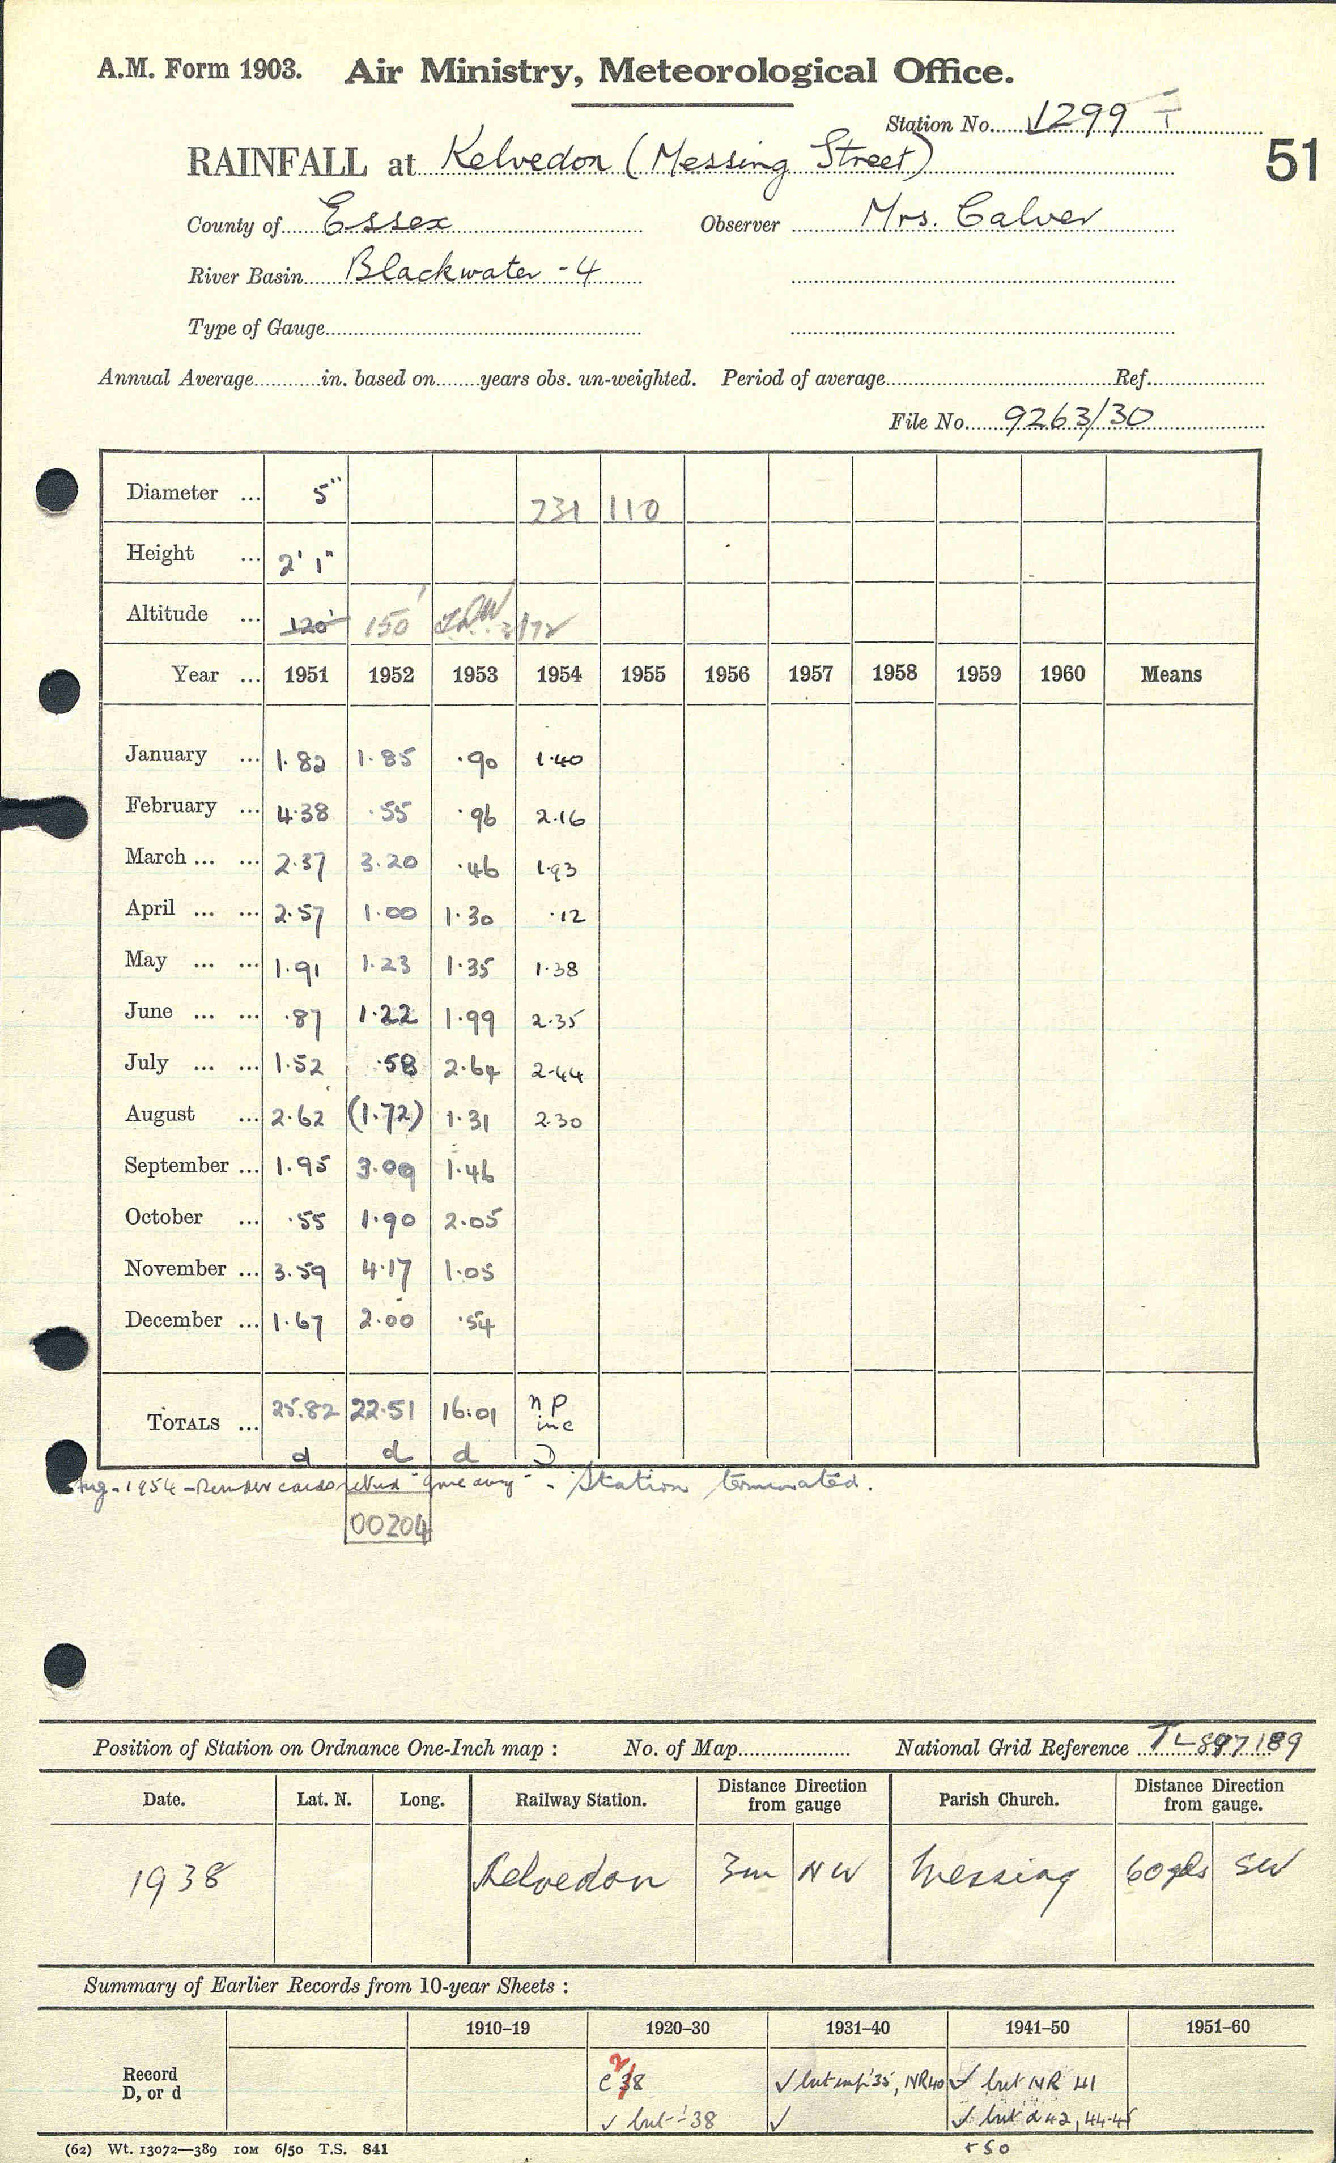 A.M. Form 1903. Air Ministry, Meteorological Office.
Station No. 1299 T
51
RAINFALL at Kelvedon (Messing Street)
County of Essex Observer Mrs. Calver
River Basin Blackwater - 4
Type of Gauge
Annual Average in. based on years obs. un-weighted. Period of average Ref.
File No. 9263/30
Diameter ... 5" 231 110
Height ... 2' 1"
Altitude ... 120' 150' 3/72
Year ... 1951 1952 1953 1954 1955 1956 1957 1958 1959 1960 Means
January ... 1.82 1.85 .90 1.40
February ... 4.38 .55 .96 2.16
March ... ... 2.37 3.20 .46 1.93
April ... ... 2.57 1.00 1.30 .12
May ... ... 1.91 1.23 1.35 1.38
June ... ... .87 1.22 1.99 2.35
July ... ... 1.52 .58 2.64 2.44
August ... 2.62 (1.72) 1.31 2.30
September ... 1.95 3.09 1.46
October ... .55 1.90 2.05
November ... 3.59 4.17 1.05
December ... 1.67 2.00 .54
TOTALS ... 25.82 22.51 16.01 n P inc
d d d D
Aug - 1954 - Reminder cards retnd "gone away" - Station terminated.
00204
Position of Station on Ordnance One-Inch map : No. of Map National Grid Reference TL 897189
Date. Lat. N. Long. Railway Station. Distance Direction from gauge Parish Church. Distance Direction from gauge.
1938 Kelvedon 3m NW Messing 60yds SW
Summary of Earlier Records from 10-year Sheets :
1910–19 1920–30 1931–40 1941–50 1951–60
Record D, or d
c 38 2/ ✓ but inc '35, NR40 ✓ but NR 41
✓ but '38 ✓ ✓ but d 42, 44-45
+ 50
(62) Wt. 13072—389 10M 6/50 T.S. 841